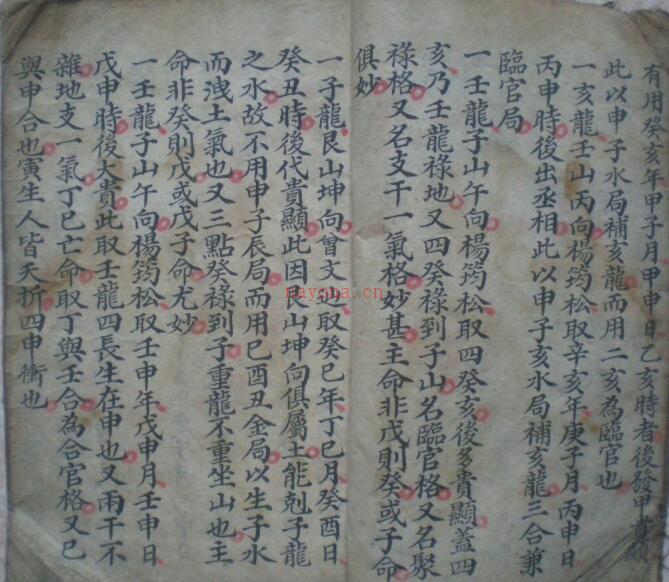 有用癸亥年甲子月甲申日乙亥時者後發甲貴顯
此以申子水局補亥龍而用二亥為臨官也
一亥龍壬山丙向楊筠松取辛亥年庚子月丙申日
丙申時後出丞相此以申子亥水局補亥龍三合兼
臨官局
一壬龍子山午向楊筠松取四癸亥後多貴顯蓋四
亥乃壬龍祿地又四癸祿到子山名臨官格又名聚
祿格又名支干一氣格妙甚主命非戊則癸或子命
俱妙
一子龍艮山坤向曾文辿取癸巳年丁巳月癸酉日
癸丑時後代貴顯此因艮山坤向俱屬土能剋子龍
之水故不用申子辰局而用巳酉丑金局以生子水
而洩土氣也又三點癸祿到子重龍不重坐山也主
命非癸則戊或戊子命尤妙
一壬龍子山午向楊筠松取壬申年戊申月壬申日
戊申時後大貴此取壬龍四長生在申也又兩干不
雜地支一氣丁巳亡命取丁與壬合為合官格又巳
與申合也寅生人皆夭折四申衝也
nayona.cn